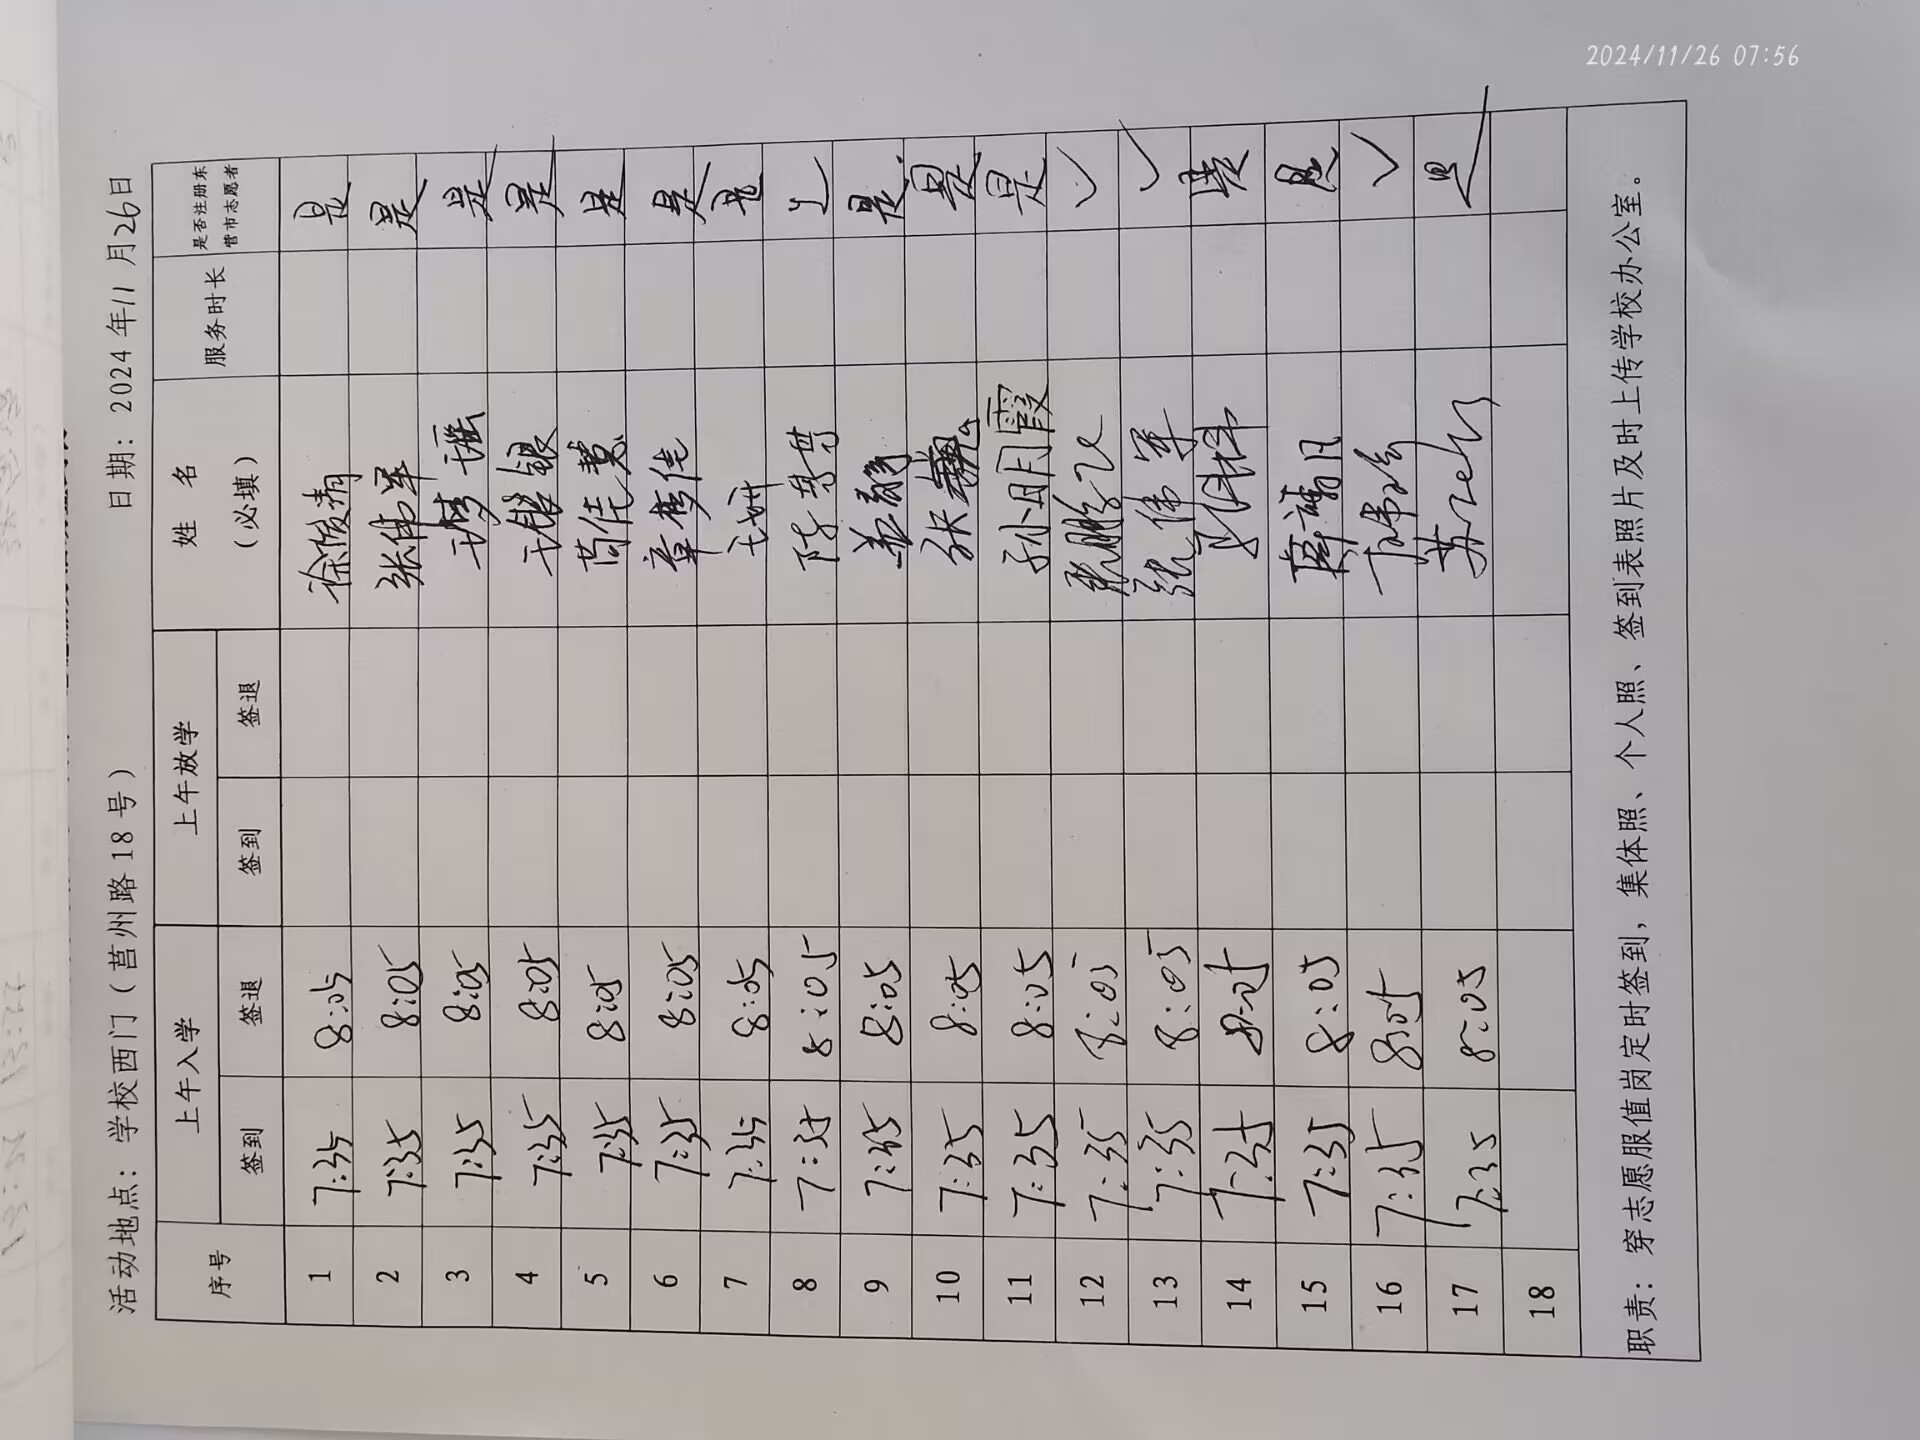 2024/11/26 07:56
活动地点：学校西门（莒州路18号） 日期：2024年11月26日
序号 上午入学 上午放学 姓 名（必填） 服务时长 是否注册东营市志愿者
签到 签退 签到 签退
1 7:35 8:05 是
2 7:35 8:05 张伟军 是
3 7:35 8:05 是
4 7:35 8:05 是
5 7:35 8:05 苟佳慧 是
6 7:35 8:05 章梦佳 是
7 7:35 8:05 是
8 7:35 8:05
9 7:35 8:05 是
10 7:35 8:05 是
11 7:35 8:05 孙明霞 是
12 7:35 8:05 张鹏飞 ✓
13 7:35 8:05 张伟军 ✓
14 7:35 8:05 是
15 7:35 8:05 是
16 7:35 8:05 ✓
17 7:35 8:05 是
18
职责：穿志愿服值岗定时签到，集体照、个人照、签到表照片及时上传学校办公室。